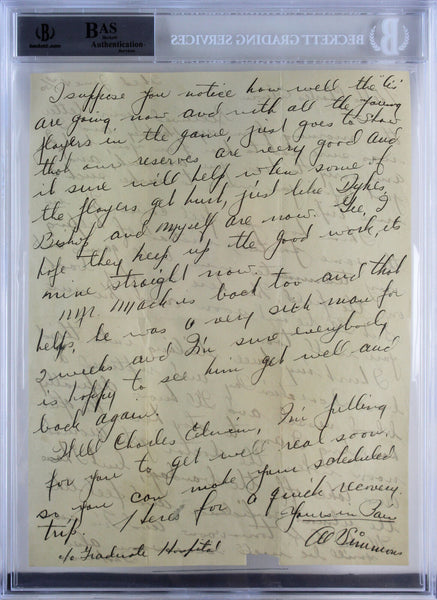 BAS
Beckett
Authentication
Services
beckett.com
BECKETT GRADING SERVICES
I suppose you notice how well the A's
are going now and with all the young
players in the game, just goes to show
that our reserves are very good and
it sure will help when some of
the players get hurt, just like Dykes,
Bishop and myself are now. Gee, I
hope they keep up the good work, its
nine straight now.
Mr. Mack is back too and that
helps, he was a very sick man for
2 weeks and I'm sure everybody
is happy to see him get well and
back again.
Well Charles Edwin, I'm pulling
for you to get well real soon,
so you can make your scheduled
trip. Heres for a quick recovery.
Yours in Pain
Al Simmons
c/o Graduate Hospital